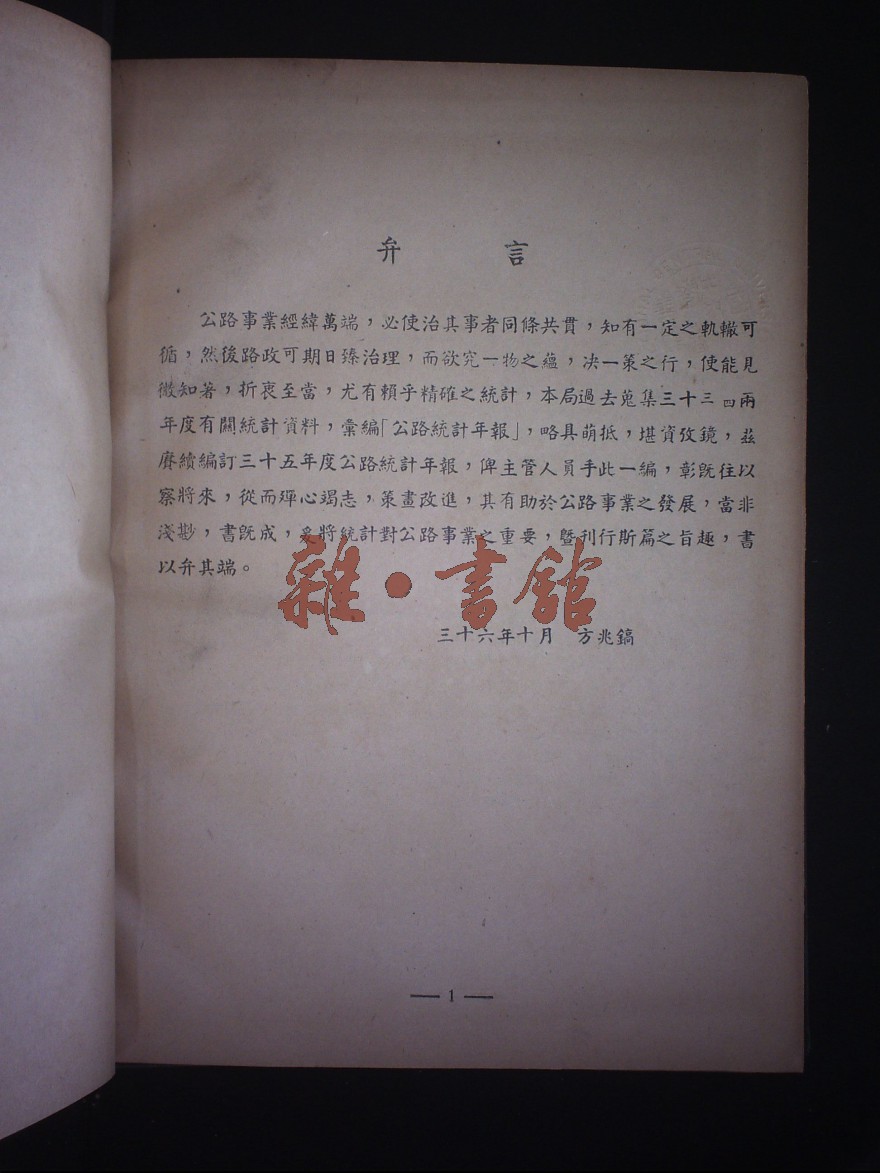 弁言
公路事業經緯萬端，必使治其事者同條共貫，知有一定之軌轍可
循，然後路政可期日臻治理，而欲究一物之蘊，决一策之行，使能見
微知著，折衷至當，尤有賴乎精確之統計，本局過去蒐集三十三四兩
年度有關統計資料，彙編「公路統計年報」，略具萌抵，堪資攷鏡，茲
賡續編訂三十五年度公路統計年報，俾主管人員手此一編，彰旣往以
察將來，從而殫心竭志，策畫改進，其有助於公路事業之發展，當非
淺尠，書旣成，爰將統計對公路事業之重要，曁刋行斯篇之旨趣，書
以弁其端。
雜·書館
三十六年十月　方兆鎬
— 1 —